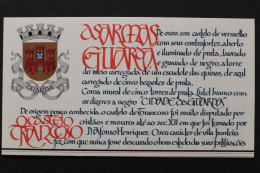 AS ARMAS
E GUARDA
De ouro, um castelo de vermelho
com seus contrafortes, aberto
e iluminado de prata, lavrado
e guisado de negro, a torre
do meio carregada de um escudo das quinas, de azul
carregado de cinco besantes de prata.
Coroa mural de cinco torres de prata. Listel branco com
os dizeres a negro CIDADE DA GUARDA
GUARDA
O CASTELO
TRANCOSO
De origem pouco conhecida, o castelo de Trancoso foi muito disputado por
cristãos e mouros até ao sec. XII em que foi tomado por
D. Afonso Henriques. O seu carácter de vila fronteira
fez com que nunca fosse descuidado